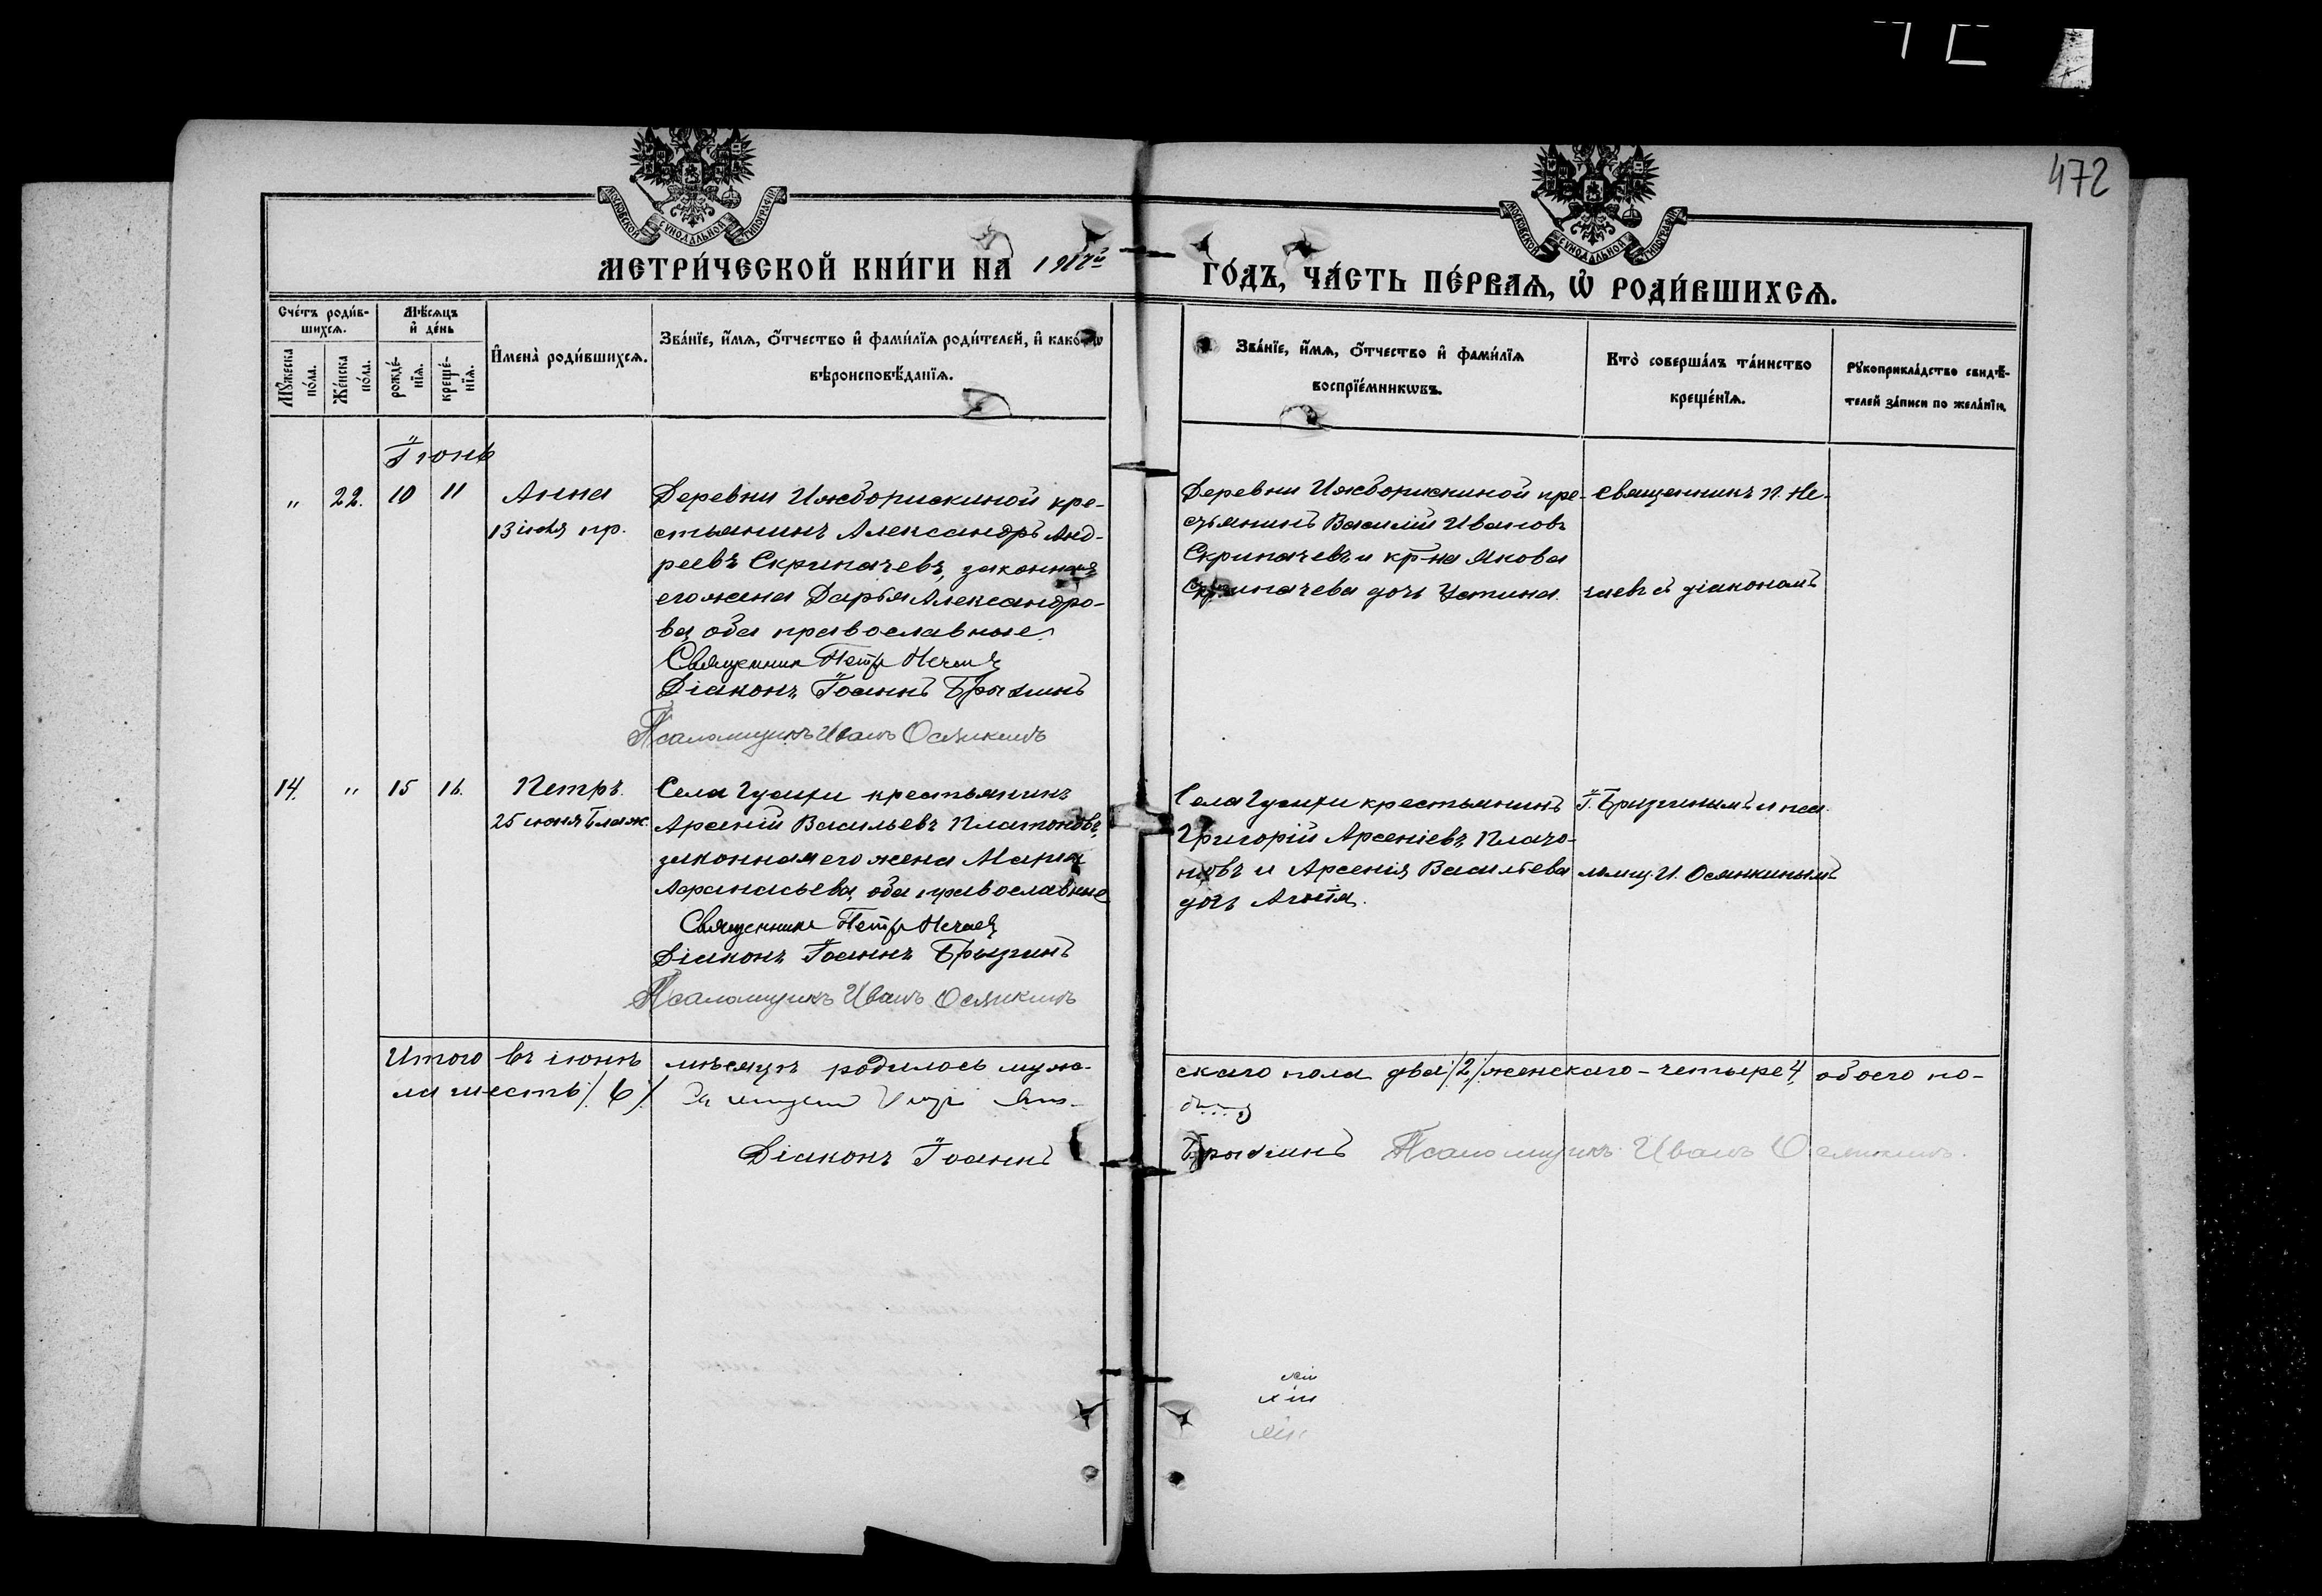 472
МОСКОВСКОЙ СѴНОДАЛЬНОЙ ТИПОГРАФІИ
МОСКОВСКОЙ СѴНОДАЛЬНОЙ ТИПОГРАФІИ
МЕТРИ́ЧЕСКОЙ КНИ́ГИ НА 1917й
ГО́ДЪ, ЧА́СТЬ ПЕ́РВАѦ, Ѡ҆ РОДИ́ВШИХСѦ.
Сче́тъ роди́в-
шихсѧ.
Мꙋ́жеска
по́ла.
Же́нска
по́ла.
Мѣ́сѧцъ
и҆ де́нь
рожде́-
нїѧ.
креще́-
нїѧ.
И҆мена̀ роди́вшихсѧ.
Зва́нїе, и҆́мѧ, ѻ҆́тчество и҆ фами́лїѧ роди́телей, и҆ како́гѡ
вѣроисповѣ́данїѧ.
Зва́нїе, и҆́мѧ, ѻ҆́тчество и҆ фами́лїѧ
воспрїе́мникѡвъ.
Кто̀ соверша́лъ та́инство
креще́нїѧ.
Рꙋкоприкла́дство свидѣ́-
телей за́писи по жела́нїю.
Іюнь
" 22. 10 11 Анна
13 іюля пр.
Деревни Ижборискиной кре-
стьянинъ Александръ Анд-
реевъ Скрипачевъ, законная
его жена Дарья Александро-
ва, оба православные.
Священник Петр Нечаев
Діаконъ Іоаннъ Брызгинъ
Псаломщикъ Иванъ Осянкинъ
Деревни Ижборискиной кре-
стьянинъ Василій Ивановъ
Скрипачевъ и кр-на Якова
Скрипачева дочь
Священникъ П. Не-
чаевъ съ діакономъ
14. " 15 16. Петръ.
25 іюня Блаж.
Села Гусихи крестьянинъ
Арсеній Васильевъ Платоновъ,
законная его жена Марія
Афанасьева, оба православные
Священник Петр Нечаев
Діаконъ Іоаннъ Брызгинъ
Псаломщикъ Иванъ Осянкинъ
Села Гусихи крестьянинъ
Григорій Арсеніевъ Плато-
новъ и Арсенія Васильева
дочь Агнія.
І. Брызгинымъ и пса-
ломщ. И. Осянкинымъ
Итого въ іюнѣ мѣсяцѣ родилось муже-
скаго пола два /2/ женскаго - четыре 4, обоего по-
ла шесть /6/.
Діаконъ Іоаннъ
Брызгинъ Псаломщикъ Иванъ Осянкинъ.